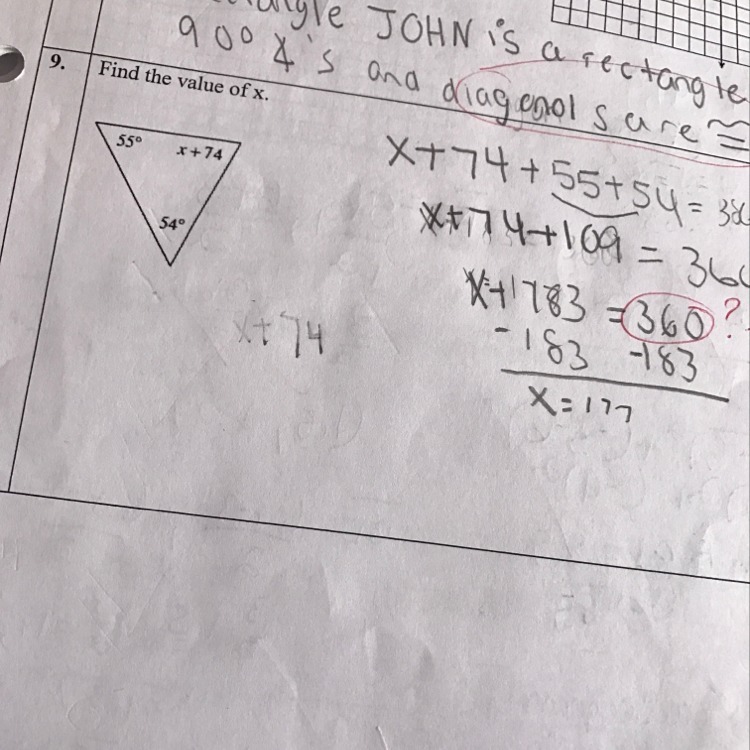 angle JOHN is a rectangle
90° ∠'s and diagonals are ≅
9. Find the value of x.
55° x + 74
54°
x+74+55+54=
x+74+109 = 360
x+183 = 360 ?
-183 -183
x+74
x=177